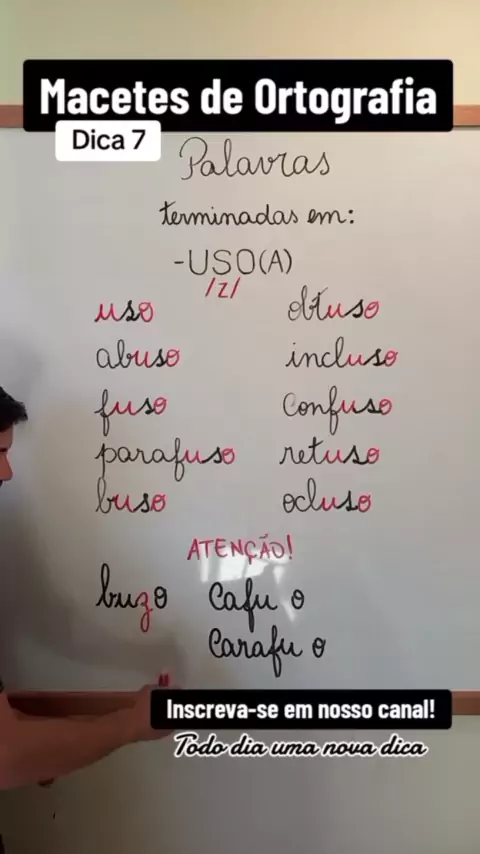 Macetes de Ortografia
Dica 7
Palavras
terminadas em:
-USO(A)
/Z/
uso
abuso
fuso
parafuso
buso
obtuso
incluso
Confuso
retuso
ocluso
ATENÇÃO!
buzo
Cafu o
Carafu o
Inscreva-se em nosso canal!
Todo dia uma nova dica